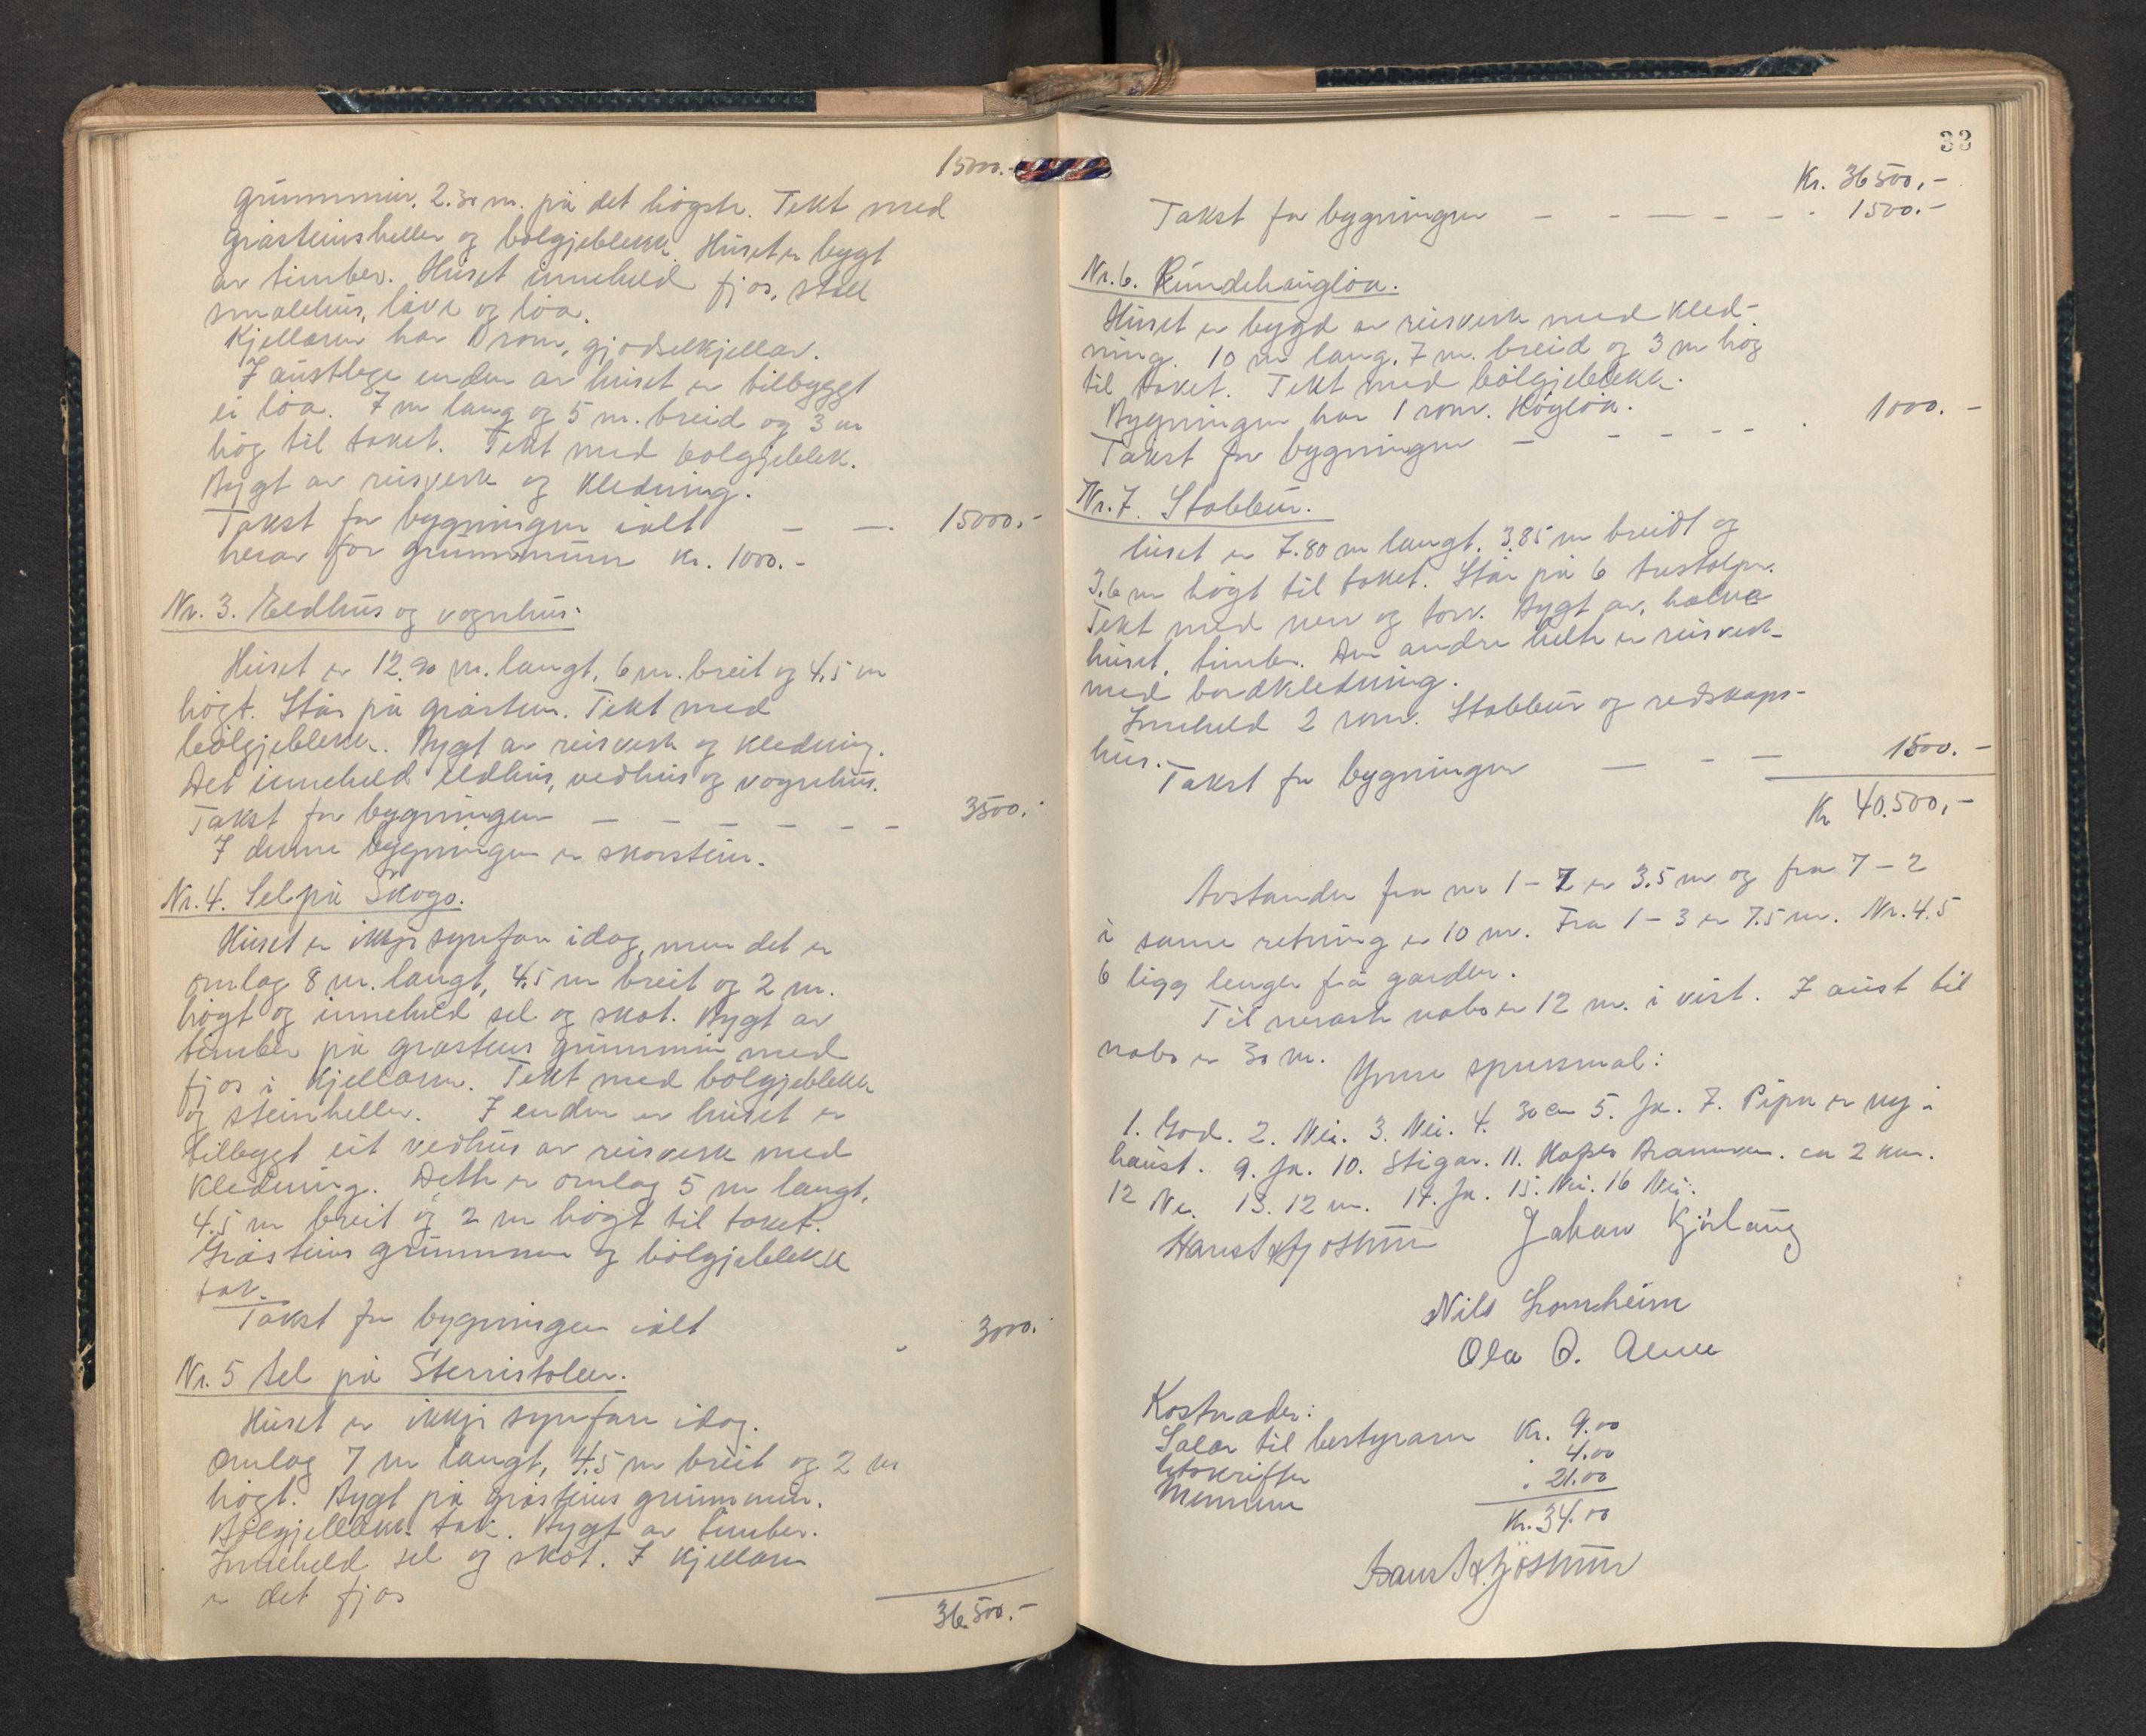 15000.-
grunnmur. 2.30 m. på det högste. Tekt med
gråsteinsheller og bölgjeblekk. Huset er bygt
av timber. Huset inneheld fjos, stall
smalehus, låve og löa.
Kjellaren har 1 rom, gjödselkjellar.
I austlege enden av huset er tilbyggt
ei löa. 7 m lang og 5 m. breid og 3 m
hög til taket. Tekt med bolgjeblek.
Bygt av reisverk og kledning.
Takst for bygningen ialt — —. 15000.-
herav for grunnmuren kr. 1000.-
Nr. 3. Eldhus og vognhus:
Huset er 12.90 m. langt, 6 m. breit og 4.5 m
högt. Står på gråstein. Tekt med
bölgjeblekk. Bygt av reisverk og kledning.
Det inneheld eldhus, vedhus og vognhus.
Takst for bygningen — — — — — — 3500.-
I denne bygningen er skorstein.
Nr. 4. Sel på Skogo.
Huset er ikkje synfare idag, men det er
omlag 8 m. langt, 4.5 m breit og 2 m.
högt og inneheld sel og skot. Bygt av
timber på gråsteins grunnmur med
fjos i kjellaren. Tekt med bolgjeblekk
og steinheller. I enden av huset er
tilbyggt eit vedhus av reisverk med
kledning. Dette er omlag 5 m langt,
4.5 m breit og 2 m högt til taket.
Gråsteins grunnmur og bölgjeblekk
tak.
Takst for bygningen ialt 3000.-
Nr. 5 Sel på Sterristolen.
Huset er ikkje synfare idag.
Omlag 7 m langt, 4.5 m breit og 2 m
högt. Bygt på gråsteins grunnmur.
Bölgjeblekk tak. Bygt av timber.
Inneheld sel og skot. I kjellaren
er det fjos
36.500.-
33
Kr. 36500,-
Takst for bygningen — — — — — 1500.-
Nr. 6. Rundehaugloa.
Huset er bygd av reisverk med kled-
ning. 10 m lang, 7 m. breid og 3 m hög
til taket. Tekt med bölgjeblekk.
Bygningen har 1 rom. Höyloa.
Takst for bygningen — — — — — 1000.-
Nr. 7. Stabbur.
huset er 7.80 m langt, 3.85 m breidt og
3.6 m högt til taket. Står på 6 trestolpar.
Tekt med never og torv. Bygt av, halve
huset, timber. Den andre helte er reisverk-
med bordkledning.
Inneheld 2 rom. Stabbur og redskaps-
hus.
Takst for bygningen — — — 1500.-
Kr 40.500,-
Avstanden fra nr 1-7 er 3.5 m og fra 7-2
i same retning er 10 m. Fra 1-3 er 7.5 m. Nr. 4.5
6 ligg lenger frå garden.
Til neraste nabo er 12 m. i vest. I aust til
nabo er 30 m.
Ymse spursmal:
1. God. 2. Nei. 3. Nei. 4. 30 cm 5. Ja. 7. Pipa er ny i
haust. 9. Ja. 10. Stigar. 11. ca 2 km.
12 Nei. 13. 12 m. 14. Ja. 15. Nei. 16 Nei.
Johan Kjörlaug
Nils Lomheim
Ola O.
Kostnader:
Salær til bestyraren Kr. 9.00
Utskrifter " 4.00
Mennene " 21.00
Kr. 34.00